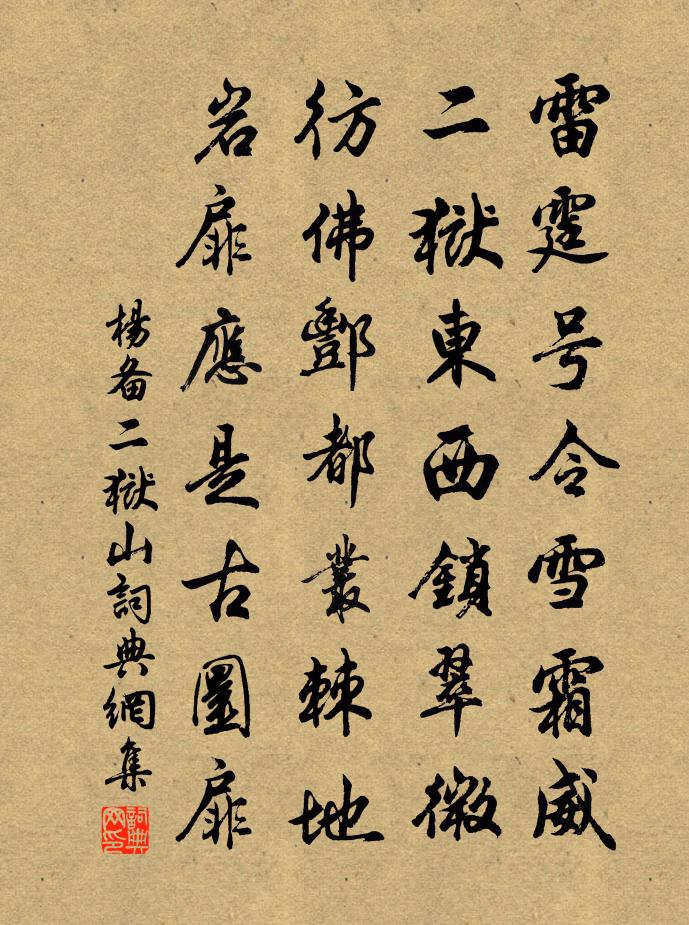 雷霆号令雪霜威
二獄東西鎖翠微
彷佛酆都叢棘地
岩扉應是古圜扉
楊备二獄山詞典網集
詞典网印